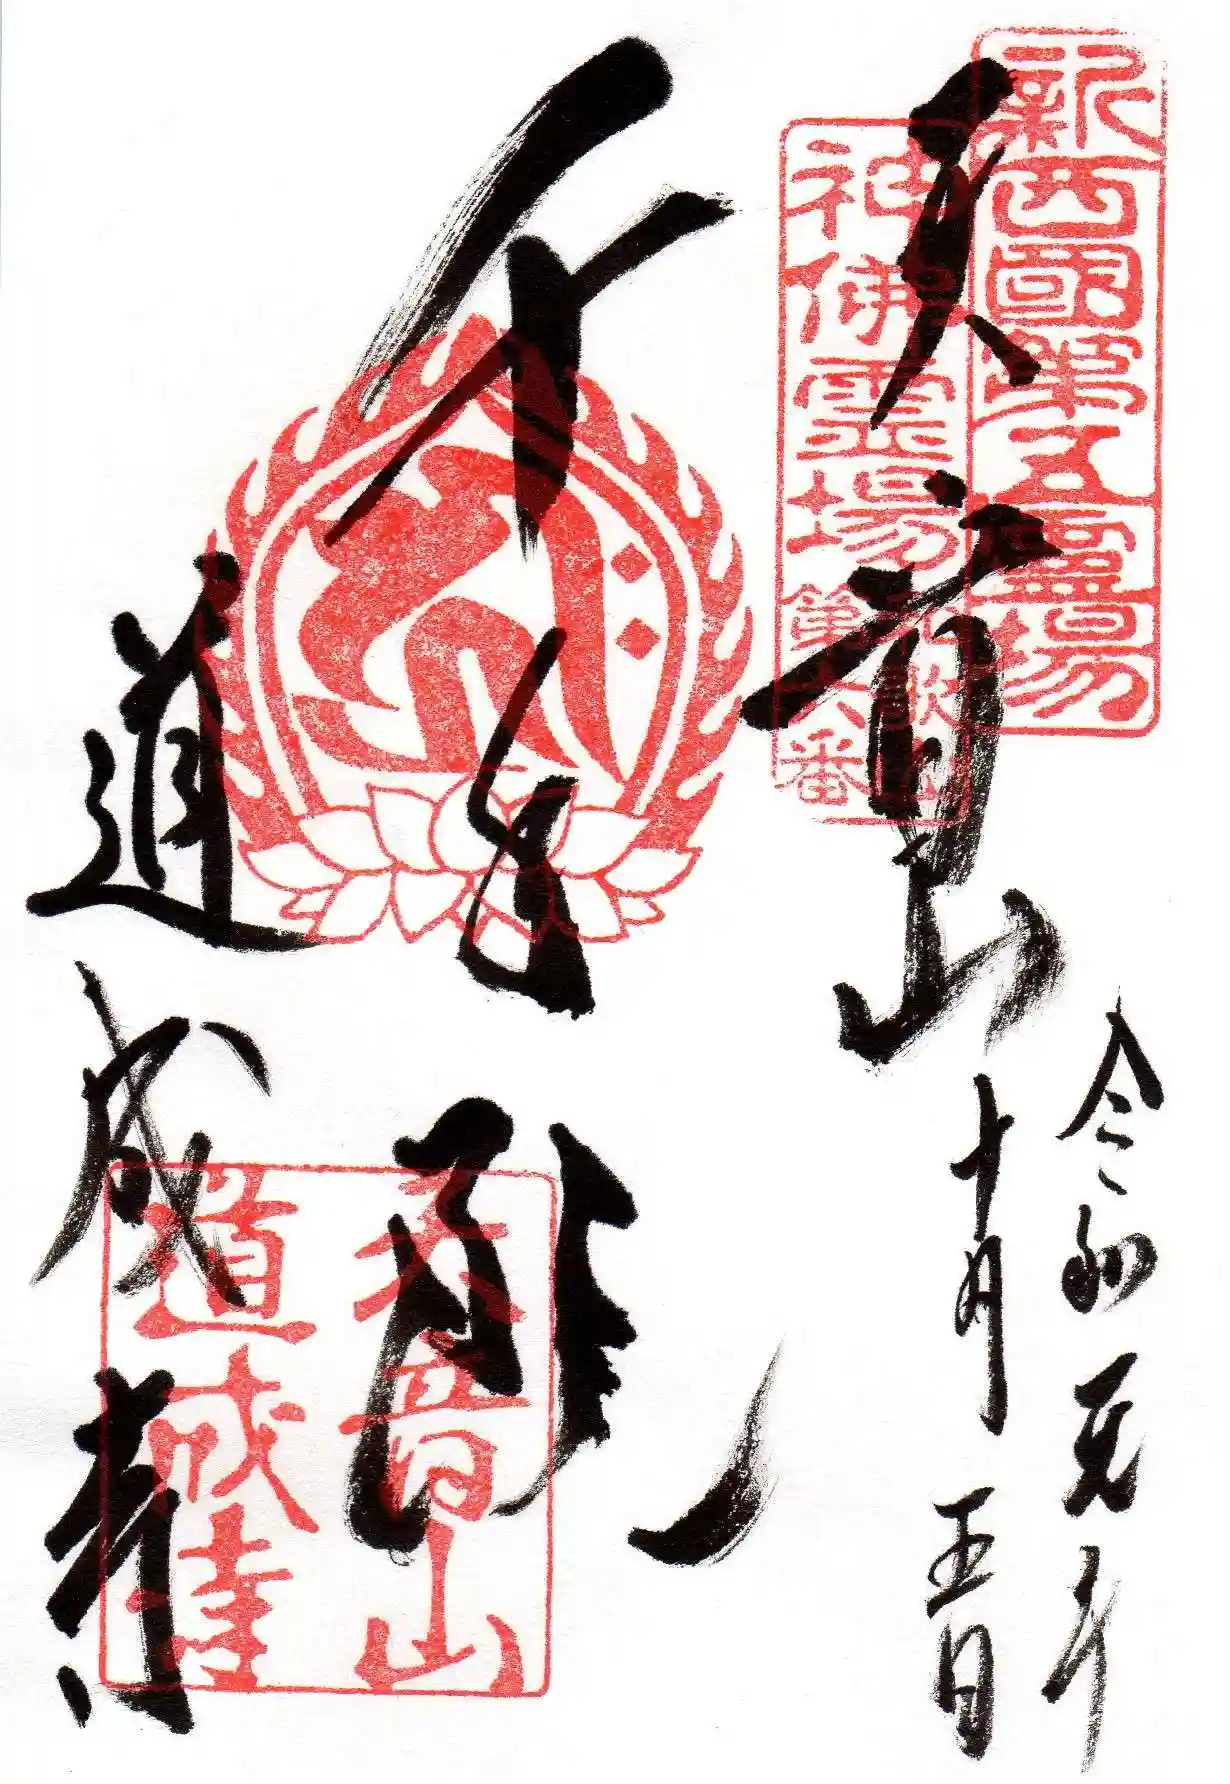 新西國第五霊場
神佛霊場
和歌山
第六番
天音山
令和元年
十月五日
千手
道成寺
天音山
道成寺